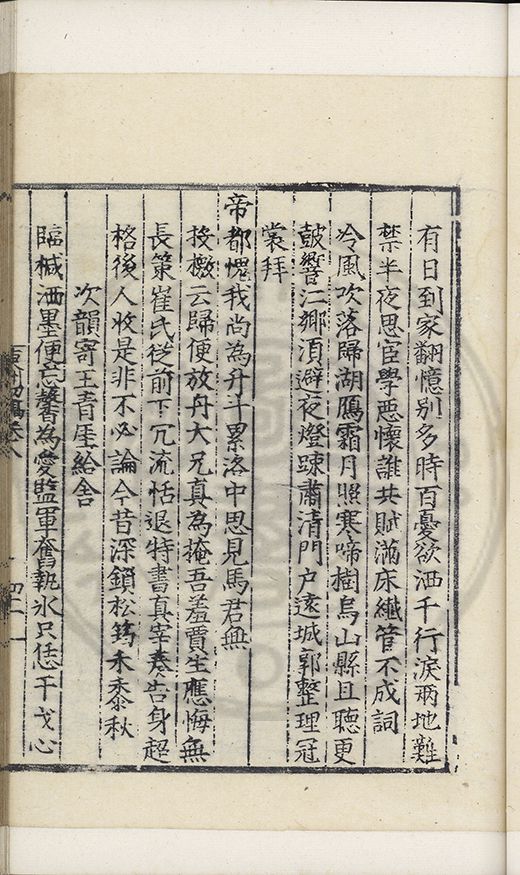 有日到家翻憶別多時百憂欲洒千行淚兩地難
禁半夜思宦學悪懷誰共賦滿床絲管不成詞
冷風吹落歸湖鴈霜月照寒啼樹烏山縣且聽更
皷響江鄉湏避夜燈踈肅清門户遠城郭整理冠
裳拜
帝都愧我尚為升斗累洛中思見馬君無
投檄云歸便放舟大兄真為掩吾羞賈生應悔無
長策崔氏從前下冗流恬退特書真宰奏告身超
格後人收是非不必論今昔深鎖松筠禾黍秋
次韻寄王青厓給舍
臨椷洒墨便忘為愛監軍奮執氷只恁干戈心
卷八